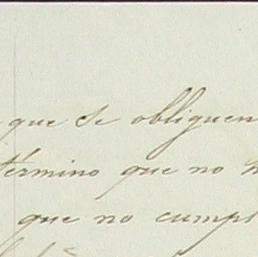 que se obliguen
término que no
que no cumpl